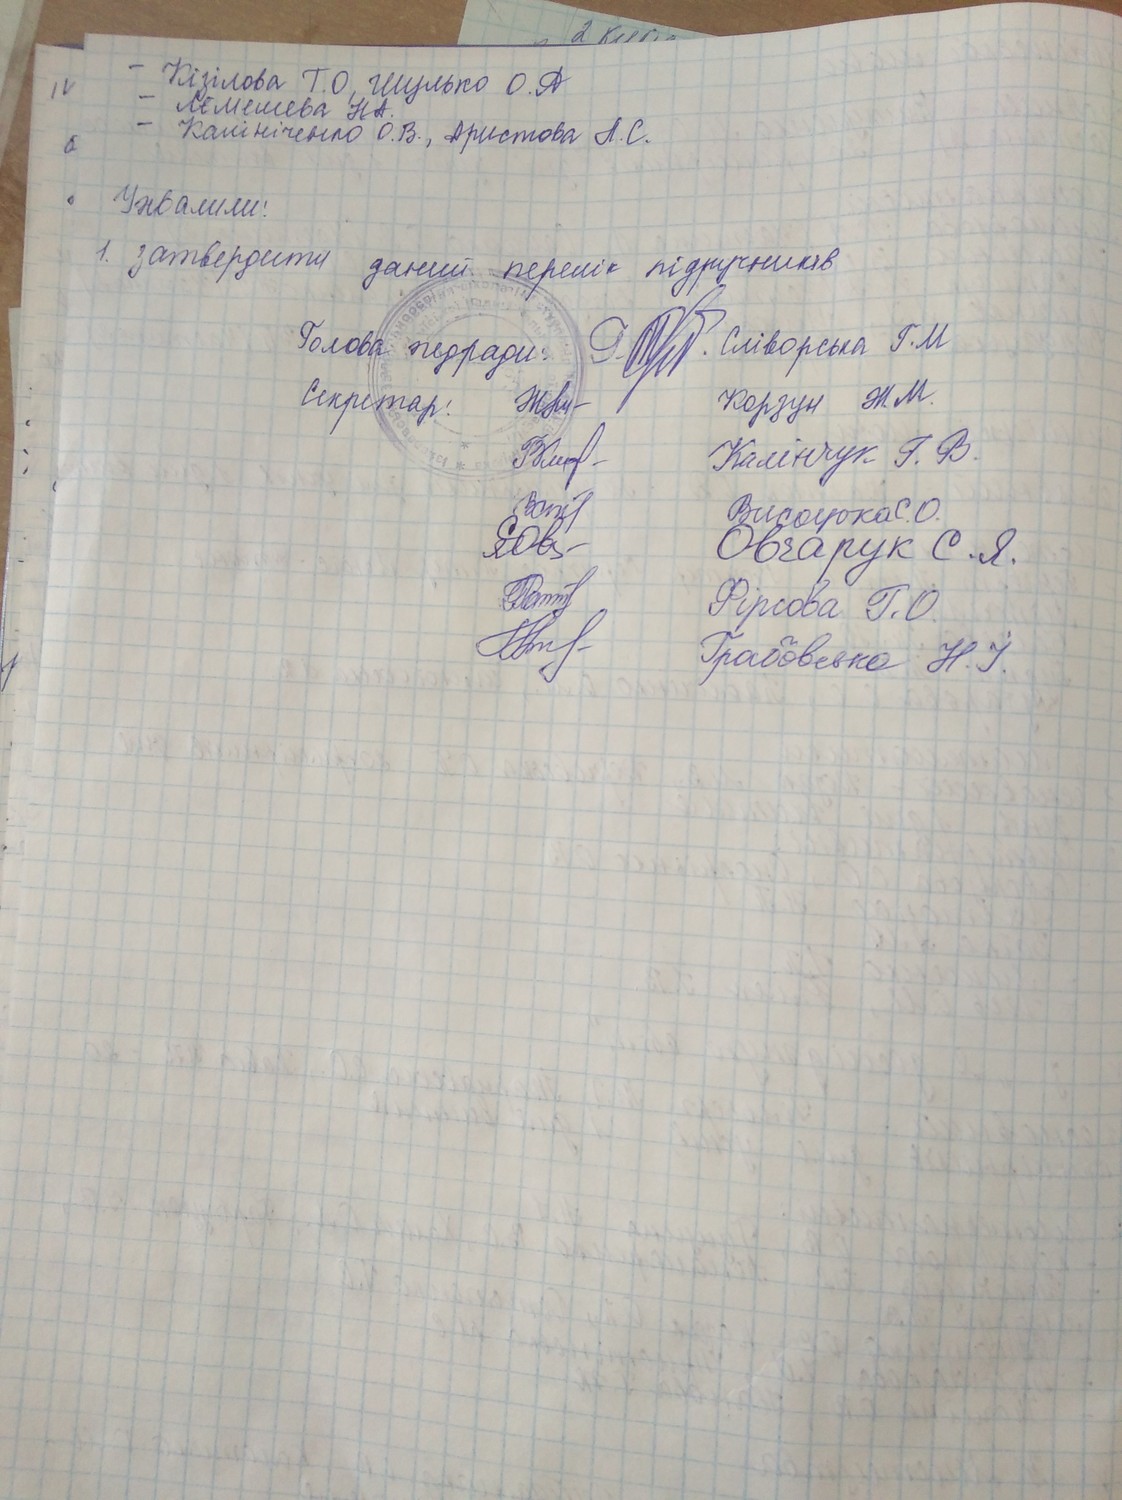 - Кізілова Т.О, Шулько О.А
- Лемешева Н.А.
- Калініченко О.В., Аристова А.С.
Ухвалили:
1. Затвердити даний перелік підручників
Голова педради: Сліворська Г.М
Секретар: Корзун Ж.М.
Калінчук Г.В.
Висоцька С.О.
Овчарук С.Я.
Фірсова Г.О.
Грабовська Н.І.